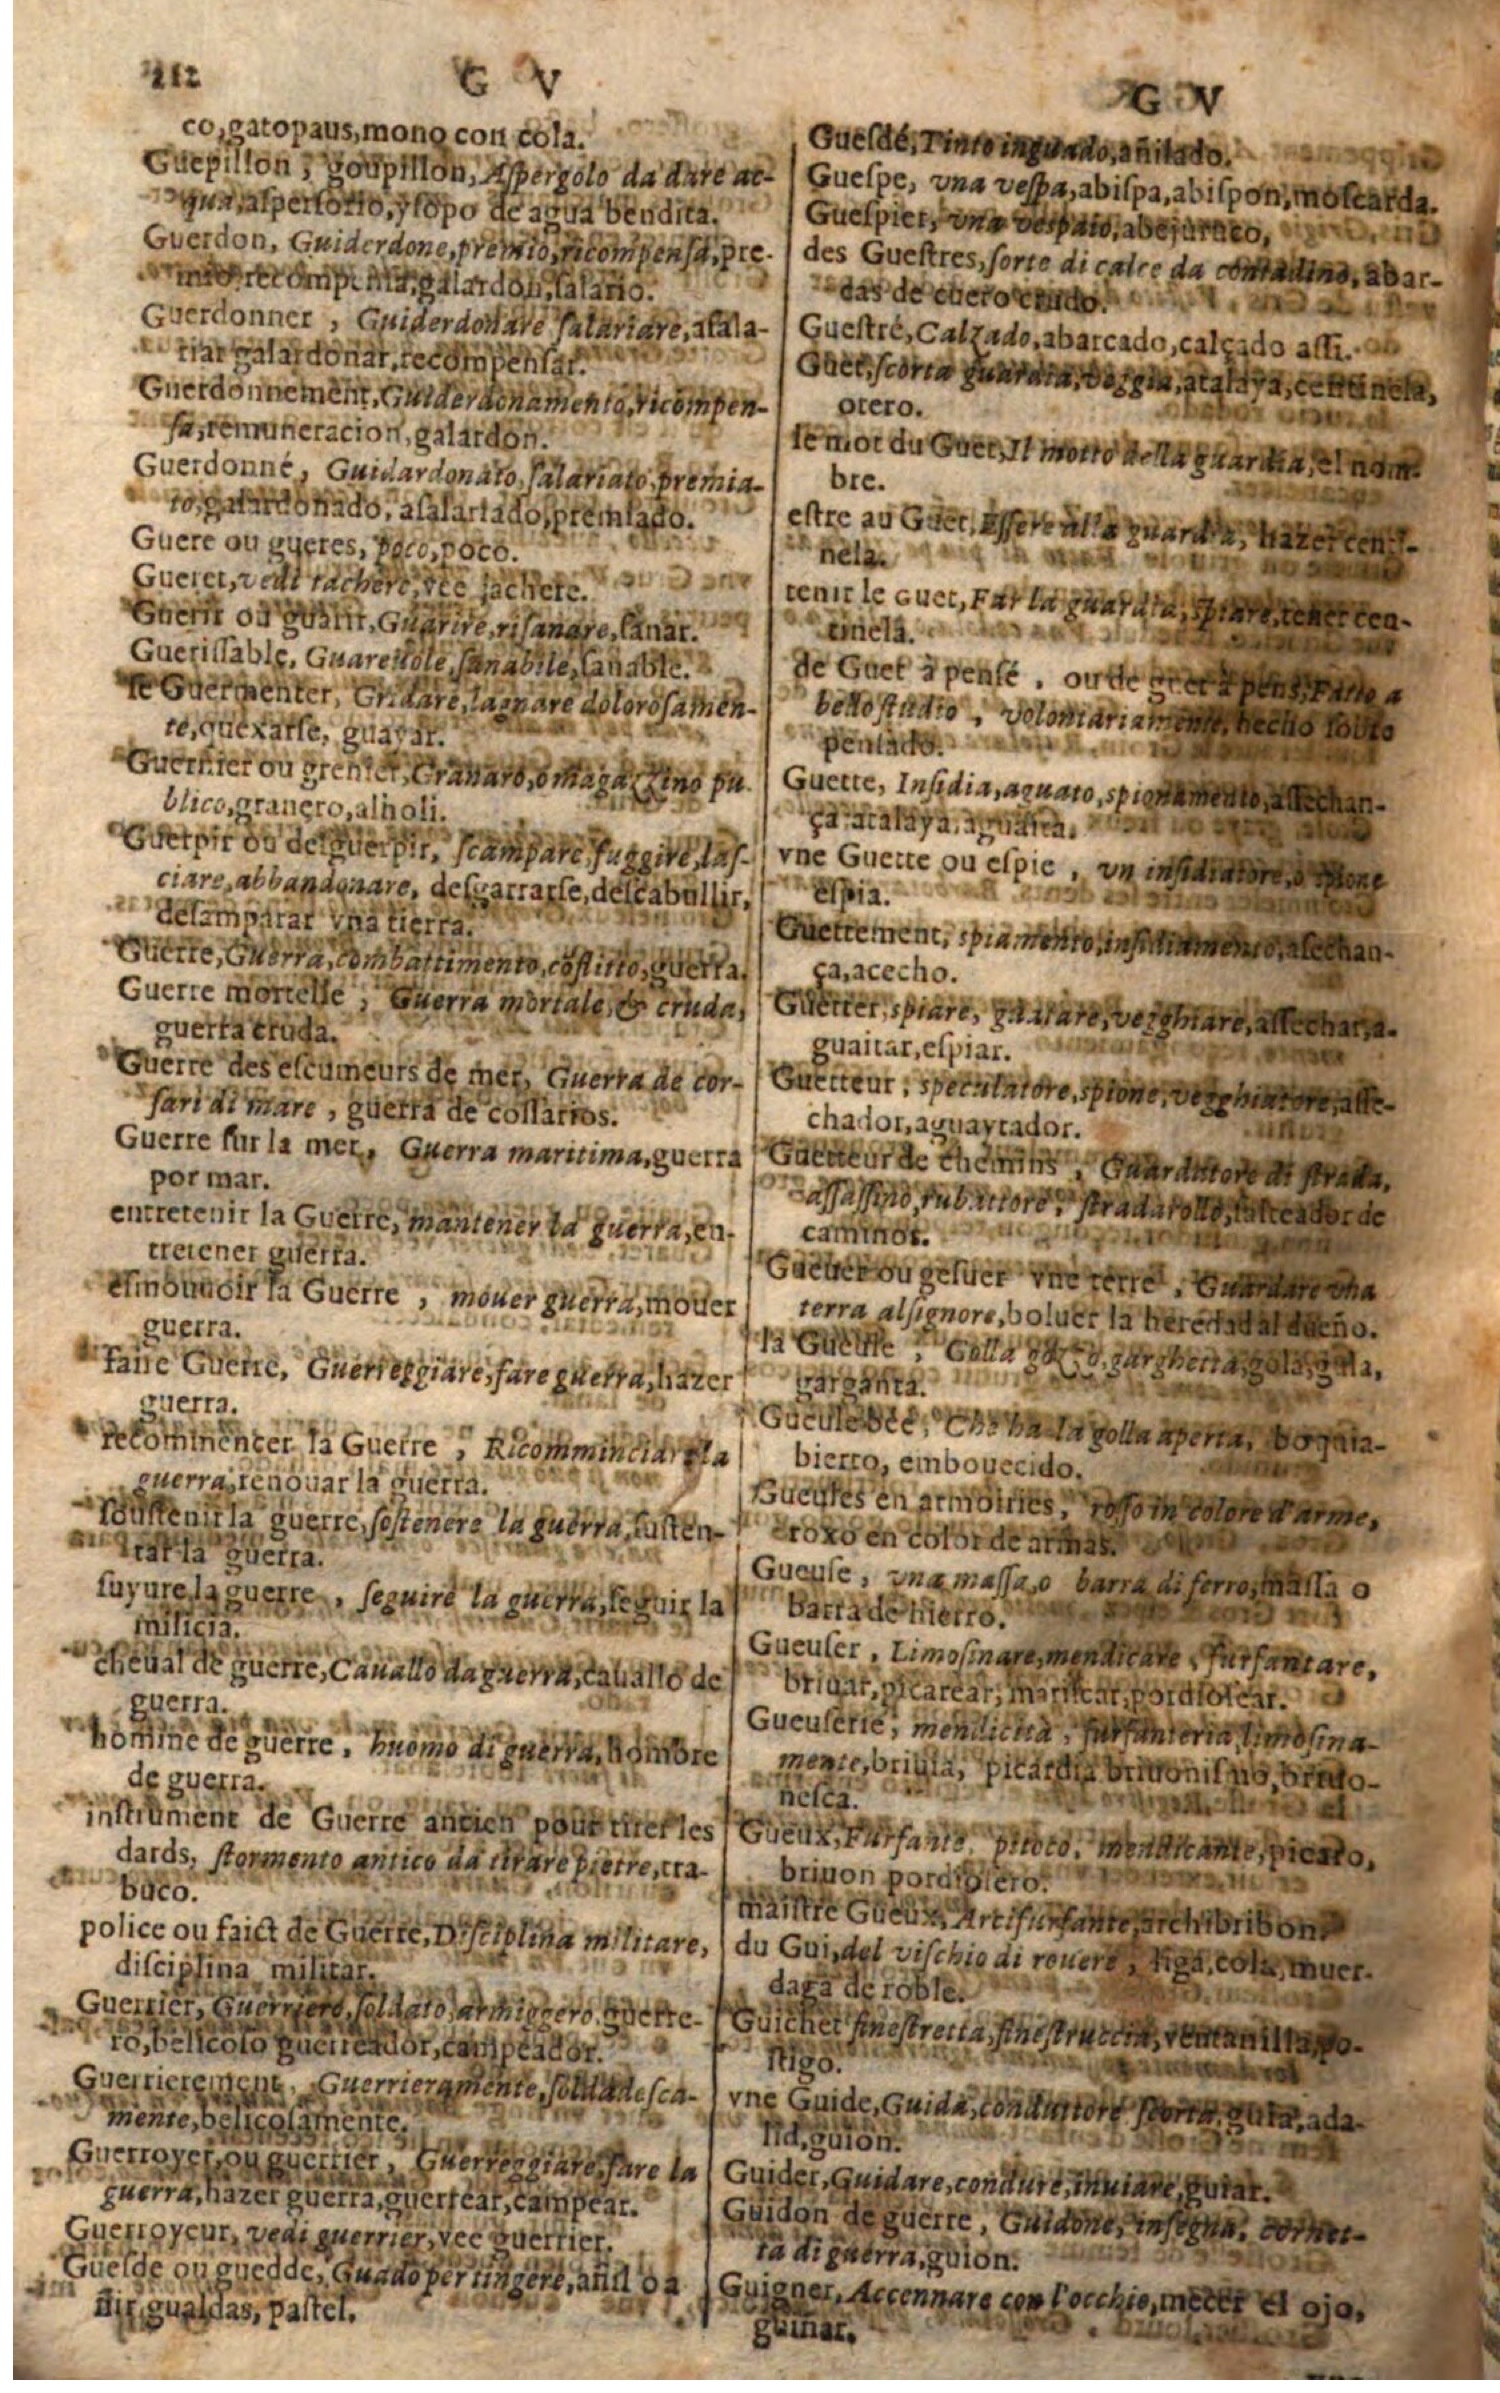 212 G V
co,gatopaus,mono con cola.
Guepillon, goupillon, Aſpergolo da dare ac-
qua,aſperſorio,yſopo de agua bendita.
Guerdon, Guiderdone,premio,ricompenſa,pre-
mio recompenſa,galardon,ſalario.
Guerdonner, Guiderdonare ſalariare,aſala-
riar galardonar,recompenſar.
Guerdonnement,Guiderdonamento,ricompen-
ſa,remuneracion,galardon.
Guerdonné, Guidardonato,ſalariato,premia-
to,galardonado,aſalariado,premiado.
Guere ou gueres, poco,poco.
Gueret,vedi iachere,vee jachere.
Guerir ou guarir,Guarire,riſanare,ſanar.
Gueriſſable, Guareuole,ſanabile,ſanable.
ſe Guermenter, Gridare,lagnare doloroſamen-
te,quexarſe, guayar.
Guernier ou grenier,Granaro,o magaZzino pu-
blico,granero,alholi.
Guerpir ou deſguerpir, ſcampare,fuggire,laſ-
ciare,abbandonare, deſgarrarſe,deſcabullir,
deſamparar vna tierra.
Guerre,Guerra,combattimento,cõflitto,guerra.
Guerre mortelle, Guerra mortale,& cruda,
guerra cruda.
Guerre des eſcumeurs de mer, Guerra de cor-
ſari di mare, guerra de coſſarios.
Guerre ſur la mer, Guerra maritima,guerra
por mar.
entretenir la Guerre, mantener la guerra,en-
tretener guerra.
eſmouuoir la Guerre, mouer guerra,mouer
guerra.
faire Guerre, Guerreggiare,fare guerra,hazer
guerra.
recommencer la Guerre, Ricomminciare la
guerra,renouar la guerra.
ſouſtenir la guerre,ſoſtenere la guerra,ſuſten-
tar la guerra.
ſuyure la guerre, ſeguire la guerra,ſeguir la
milicia.
cheual de guerre,Cauallo da guerra,cauallo de
guerra.
homme de guerre, huomo di guerra,hombre
de guerra.
inſtrument de Guerre ancien pour tirer les
dards, ſtormento antico da tirare pietre,tra-
buco.
police ou faict de Guerre,Diſciplina militare,
diſciplina militar.
Guerrier, Guerriero,ſoldato,armiggero,guerre-
ro,belicoſo guerreador,campeador.
Guerrierement, Guerrieramente,ſoldadeſca-
mente,belicoſamente.
Guerroyer,ou guerrier, Guerreggiare,fare la
guerra,hazer guerra,guerrear,campear.
Guerroyeur, vedi guerrier,vee guerrier.
Gueſde ou guedde, Guado per tingere,añil o a
ñir,gualdas,paſtel.
G V
Gueſdé,Tinto in guado,añilado.
Gueſpe, vna veſpa,abiſpa,abiſpon,moſcarda.
Gueſpier, vna veſpaio,abejuruco,
des Gueſtres,ſorte di calce da contadino,abar-
cas de cuero crudo.
Gueſtré,Calzado,abarcado,calçado aſſi.
Guet,ſcorta guardia,veggia,atalaya,centinela,
otero.
le mot du Guet,Il motto della guardia,el nom-
bre.
eſtre au Guet,Eſſere all'a guardia, hazer centi-
nela.
tenir le Guet,Far la guardia,ſpiare,tener cen-
tinela.
de Guet à penſé, ou de guet à pens,Fatto a
bello ſtudio, volontariamente,hecho ſobre
penſado.
Guette, Inſidia,aguato,spionamento,aſſechan-
ça atalaya,aguaita.
vne Guette ou eſpie, vn inſidiatore,o ſpione
eſpia.
Guettement, spiamento,inſidiamento,aſechan-
ça,acecho.
Guetter,spiare, guatare,vegghiare,aſſechar,a-
guaitar,eſpiar.
Guetteur, speculatore,spione,vegghiatore,aſſe-
chador,aguaytador.
Guetteur de chemins, Guardatore di ſtrada,
aſſaſſino,rubattore, ſtradarollo,ſalteador de
caminos.
Gueuer ou geſuer vne terre, Guardare vna
terra al ſignore,boluer la heredad al dueño.
la Gueule, Golla gozzo,garghetta,gola,gula,
garganta.
Gueule bée, Che ha la golla aperta, boquia-
bierto, embouecido.
Gueules en armoiries, roſſo in colore d'arme,
roxo en color de armas.
Gueuſe, vna maſſa,o barra di ferro,maſſa o
barra de hierro.
Gueuſer, Limoſinare,mendicare, furfantare,
briuar,picarear,mariſcar,pordioſear.
Gueuſerie, mendicità, furfanteria,limoſina-
mente,briuia, picardia briuoniſmo,briuo-
neſca.
Gueux,Furfante, pitoco, mendicante,picaro,
briuon pordioſero.
maiſtre Gueux,Arcifurfante,archibribon.
du Gui,del viſchio di rouere, liga,cola,muer-
daga de roble.
Guichet fineſtretta,fineſtruccia,ventanilla,po-
ſtigo.
vne Guide,Guida,conduttore ſcorta,guia,ada-
lid,guion.
Guider,Guidare,condure,inuiare,guiar.
Guidon de guerre, Guidone,inſegna, cornet-
ta di guerra,guion.
Guigner,Accennare con l'occhio,mecer el ojo,
guiñar.